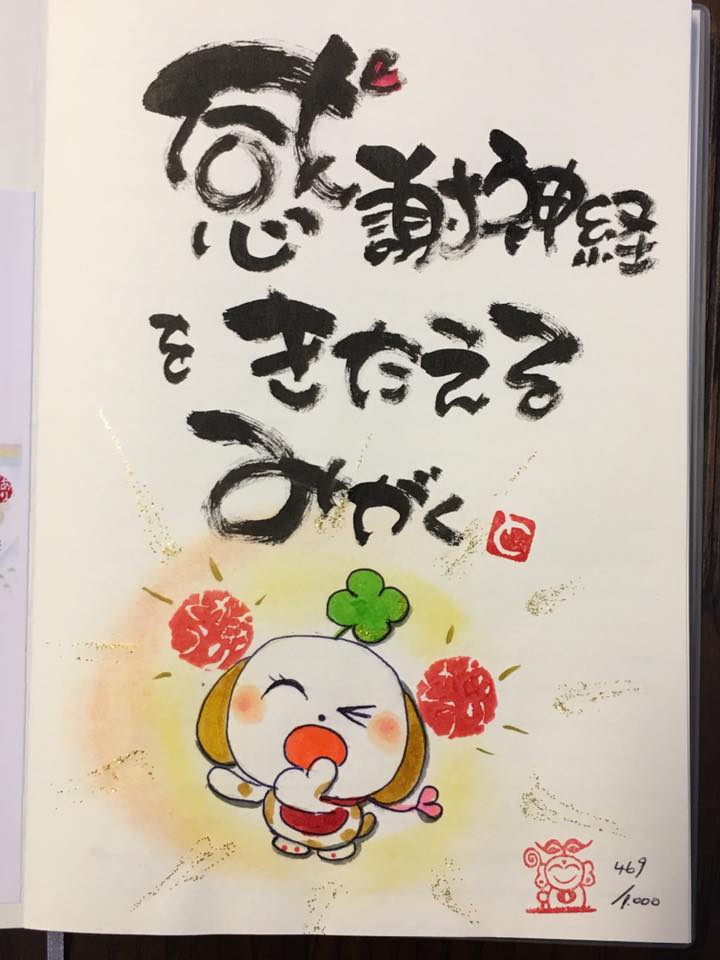 感謝神経
をきたえる
みがく
と
469
/1.000